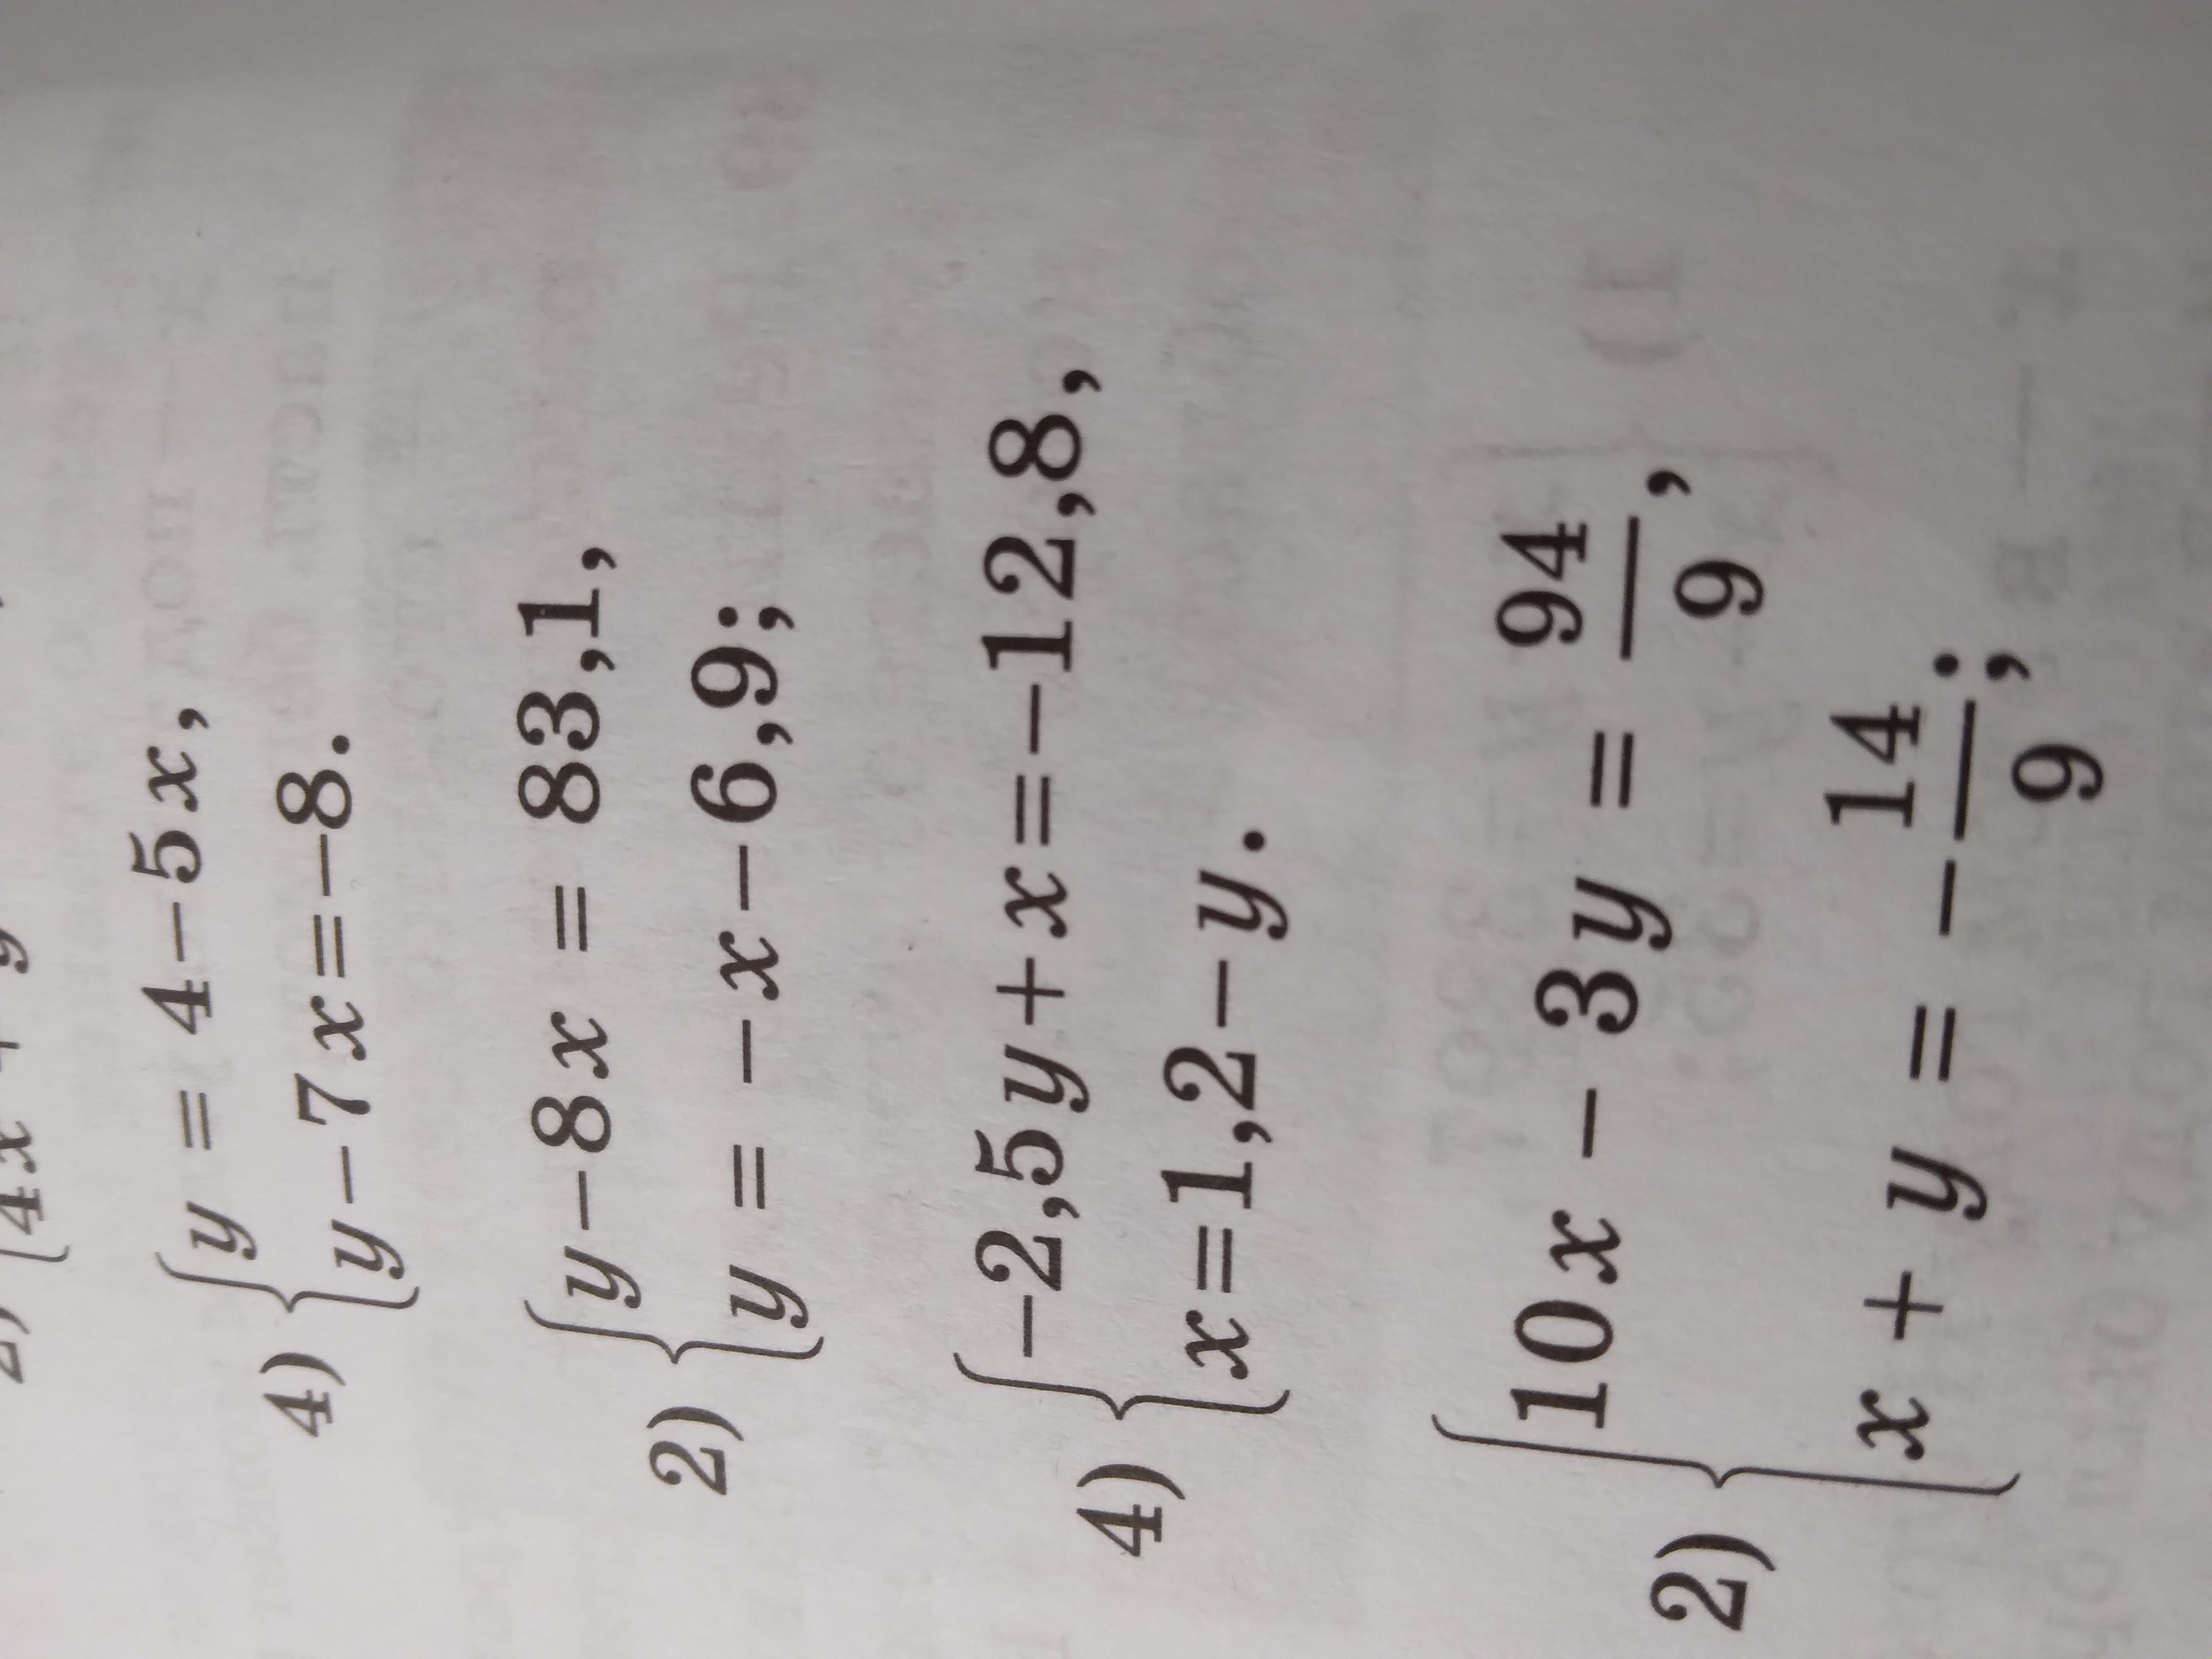 4) { y = 4 − 5x,
y − 7x = −8.
2) { y − 8x = 83,1,
y = −x − 6,9;
4) { −2,5y + x = −12,8,
x = 1,2 − y.
2) { 10x − 3y = 94/9,
x + y = −14/9;